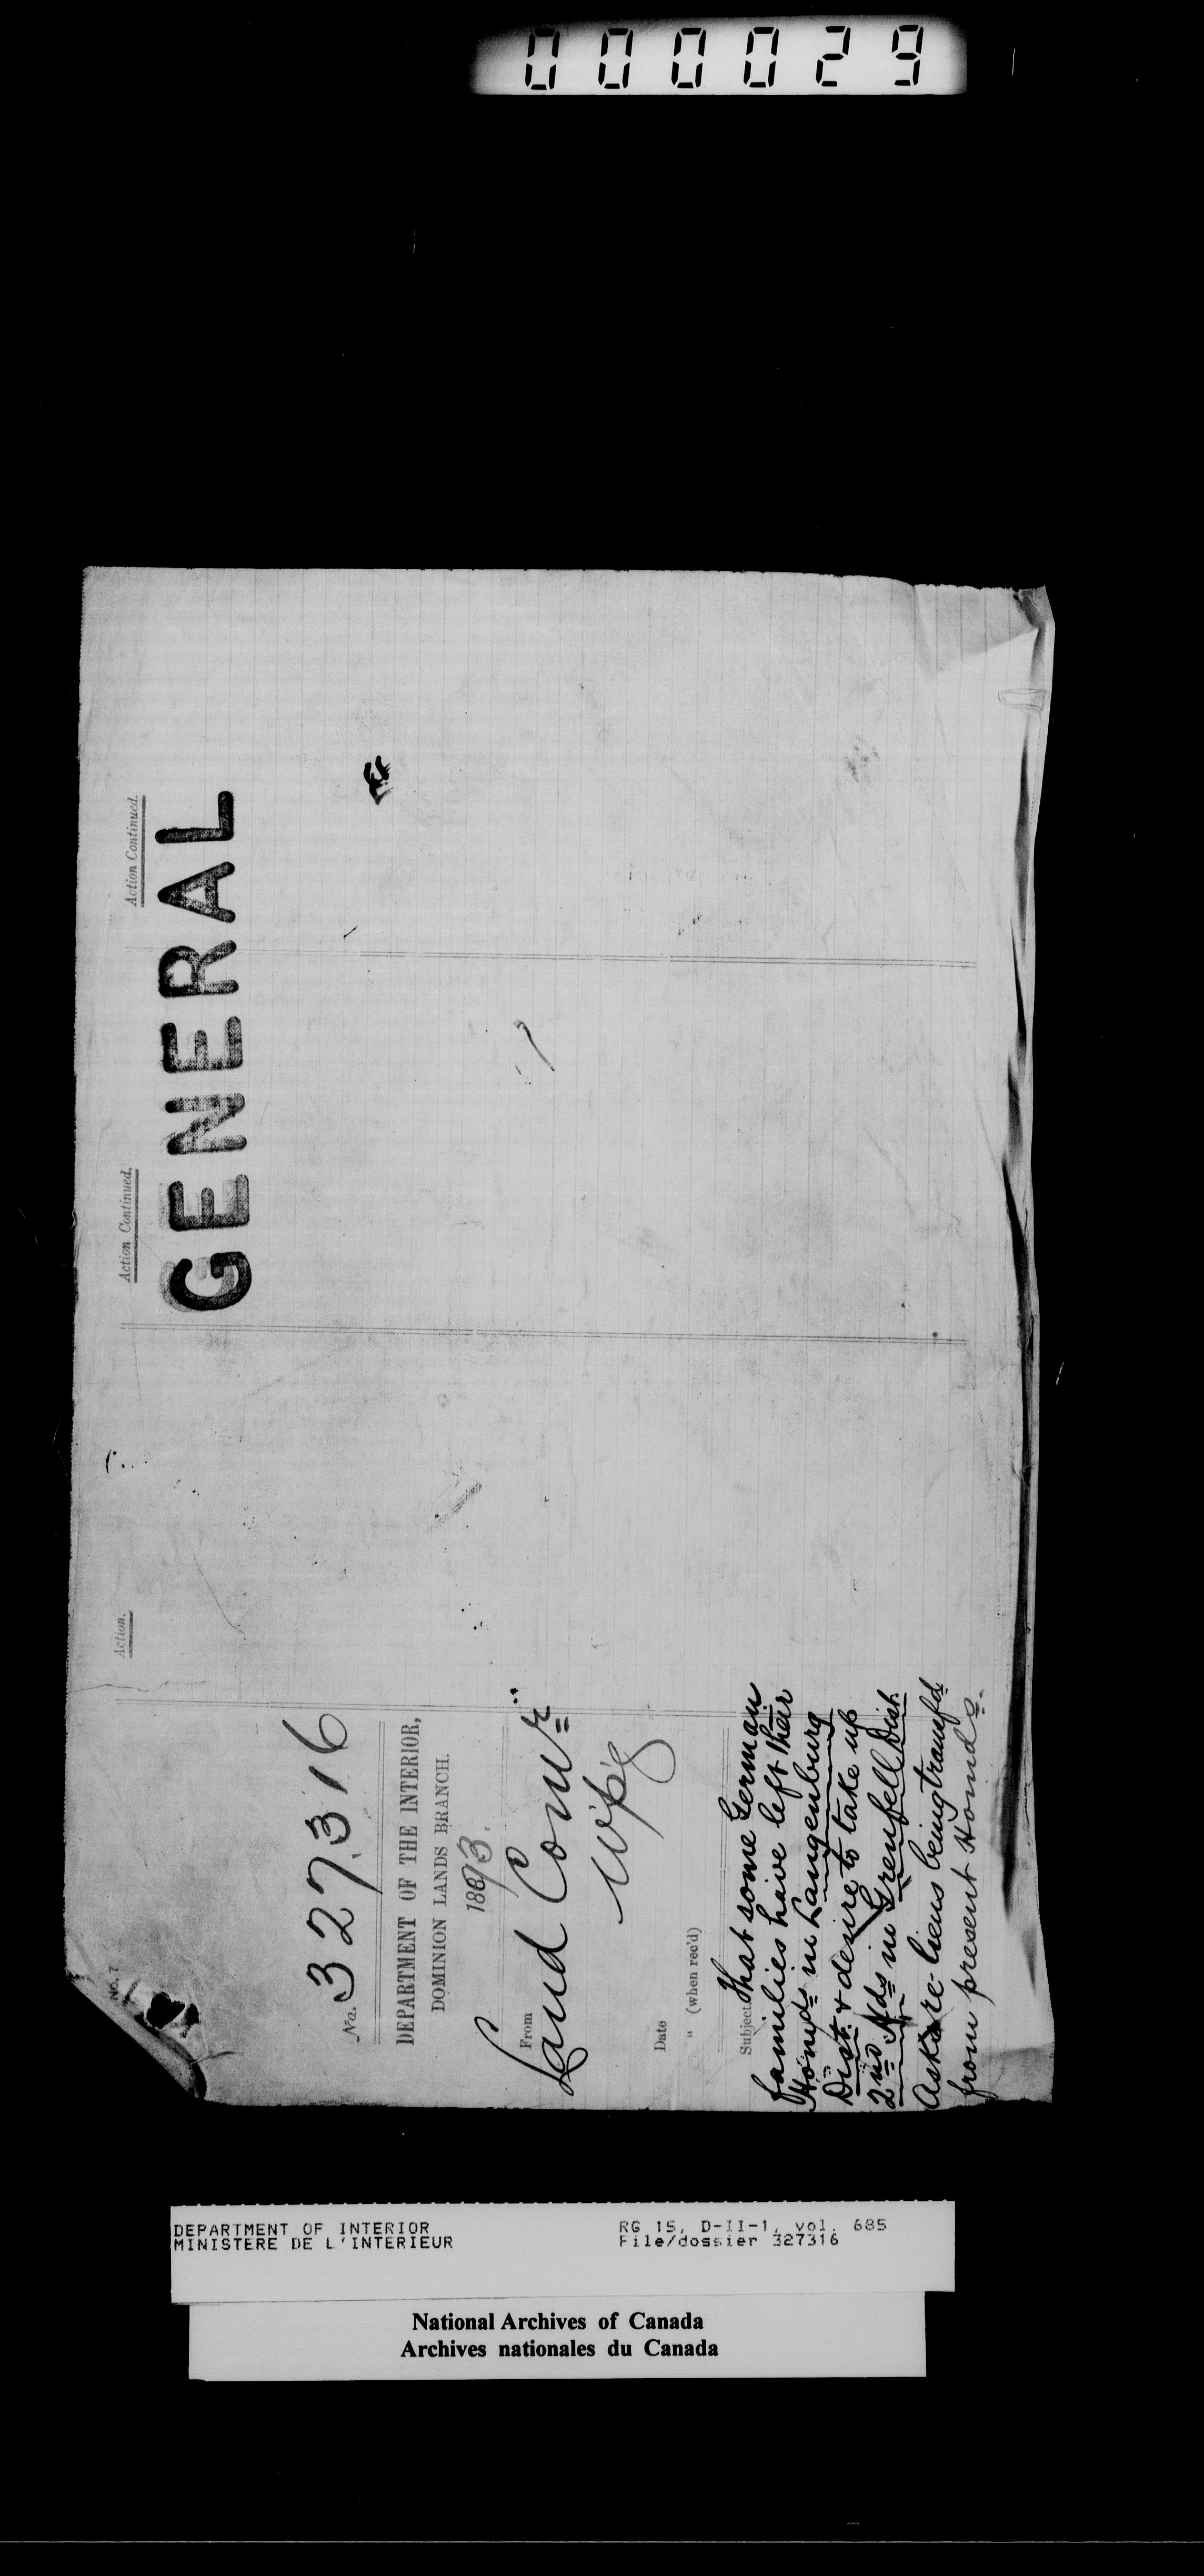 000029
No. 7
No. 327316
DEPARTMENT OF THE INTERIOR,
DOMINION LANDS BRANCH.
1893.
From
Land Comr
Wpg
Date
" (when rec'd)
Subject. That some German
families have left their
Homds in Langenburg
Dist. & desire to take up
2nd Hds in Grenfell Dist.
Asks re liens being transfd
from present Homds.
Action.
Action Continued.
Action Continued.
GENERAL
DEPARTMENT OF INTERIOR
MINISTERE DE L'INTERIEUR
RG 15, D-II-1, vol. 685
File/dossier 327316
National Archives of Canada
Archives nationales du Canada